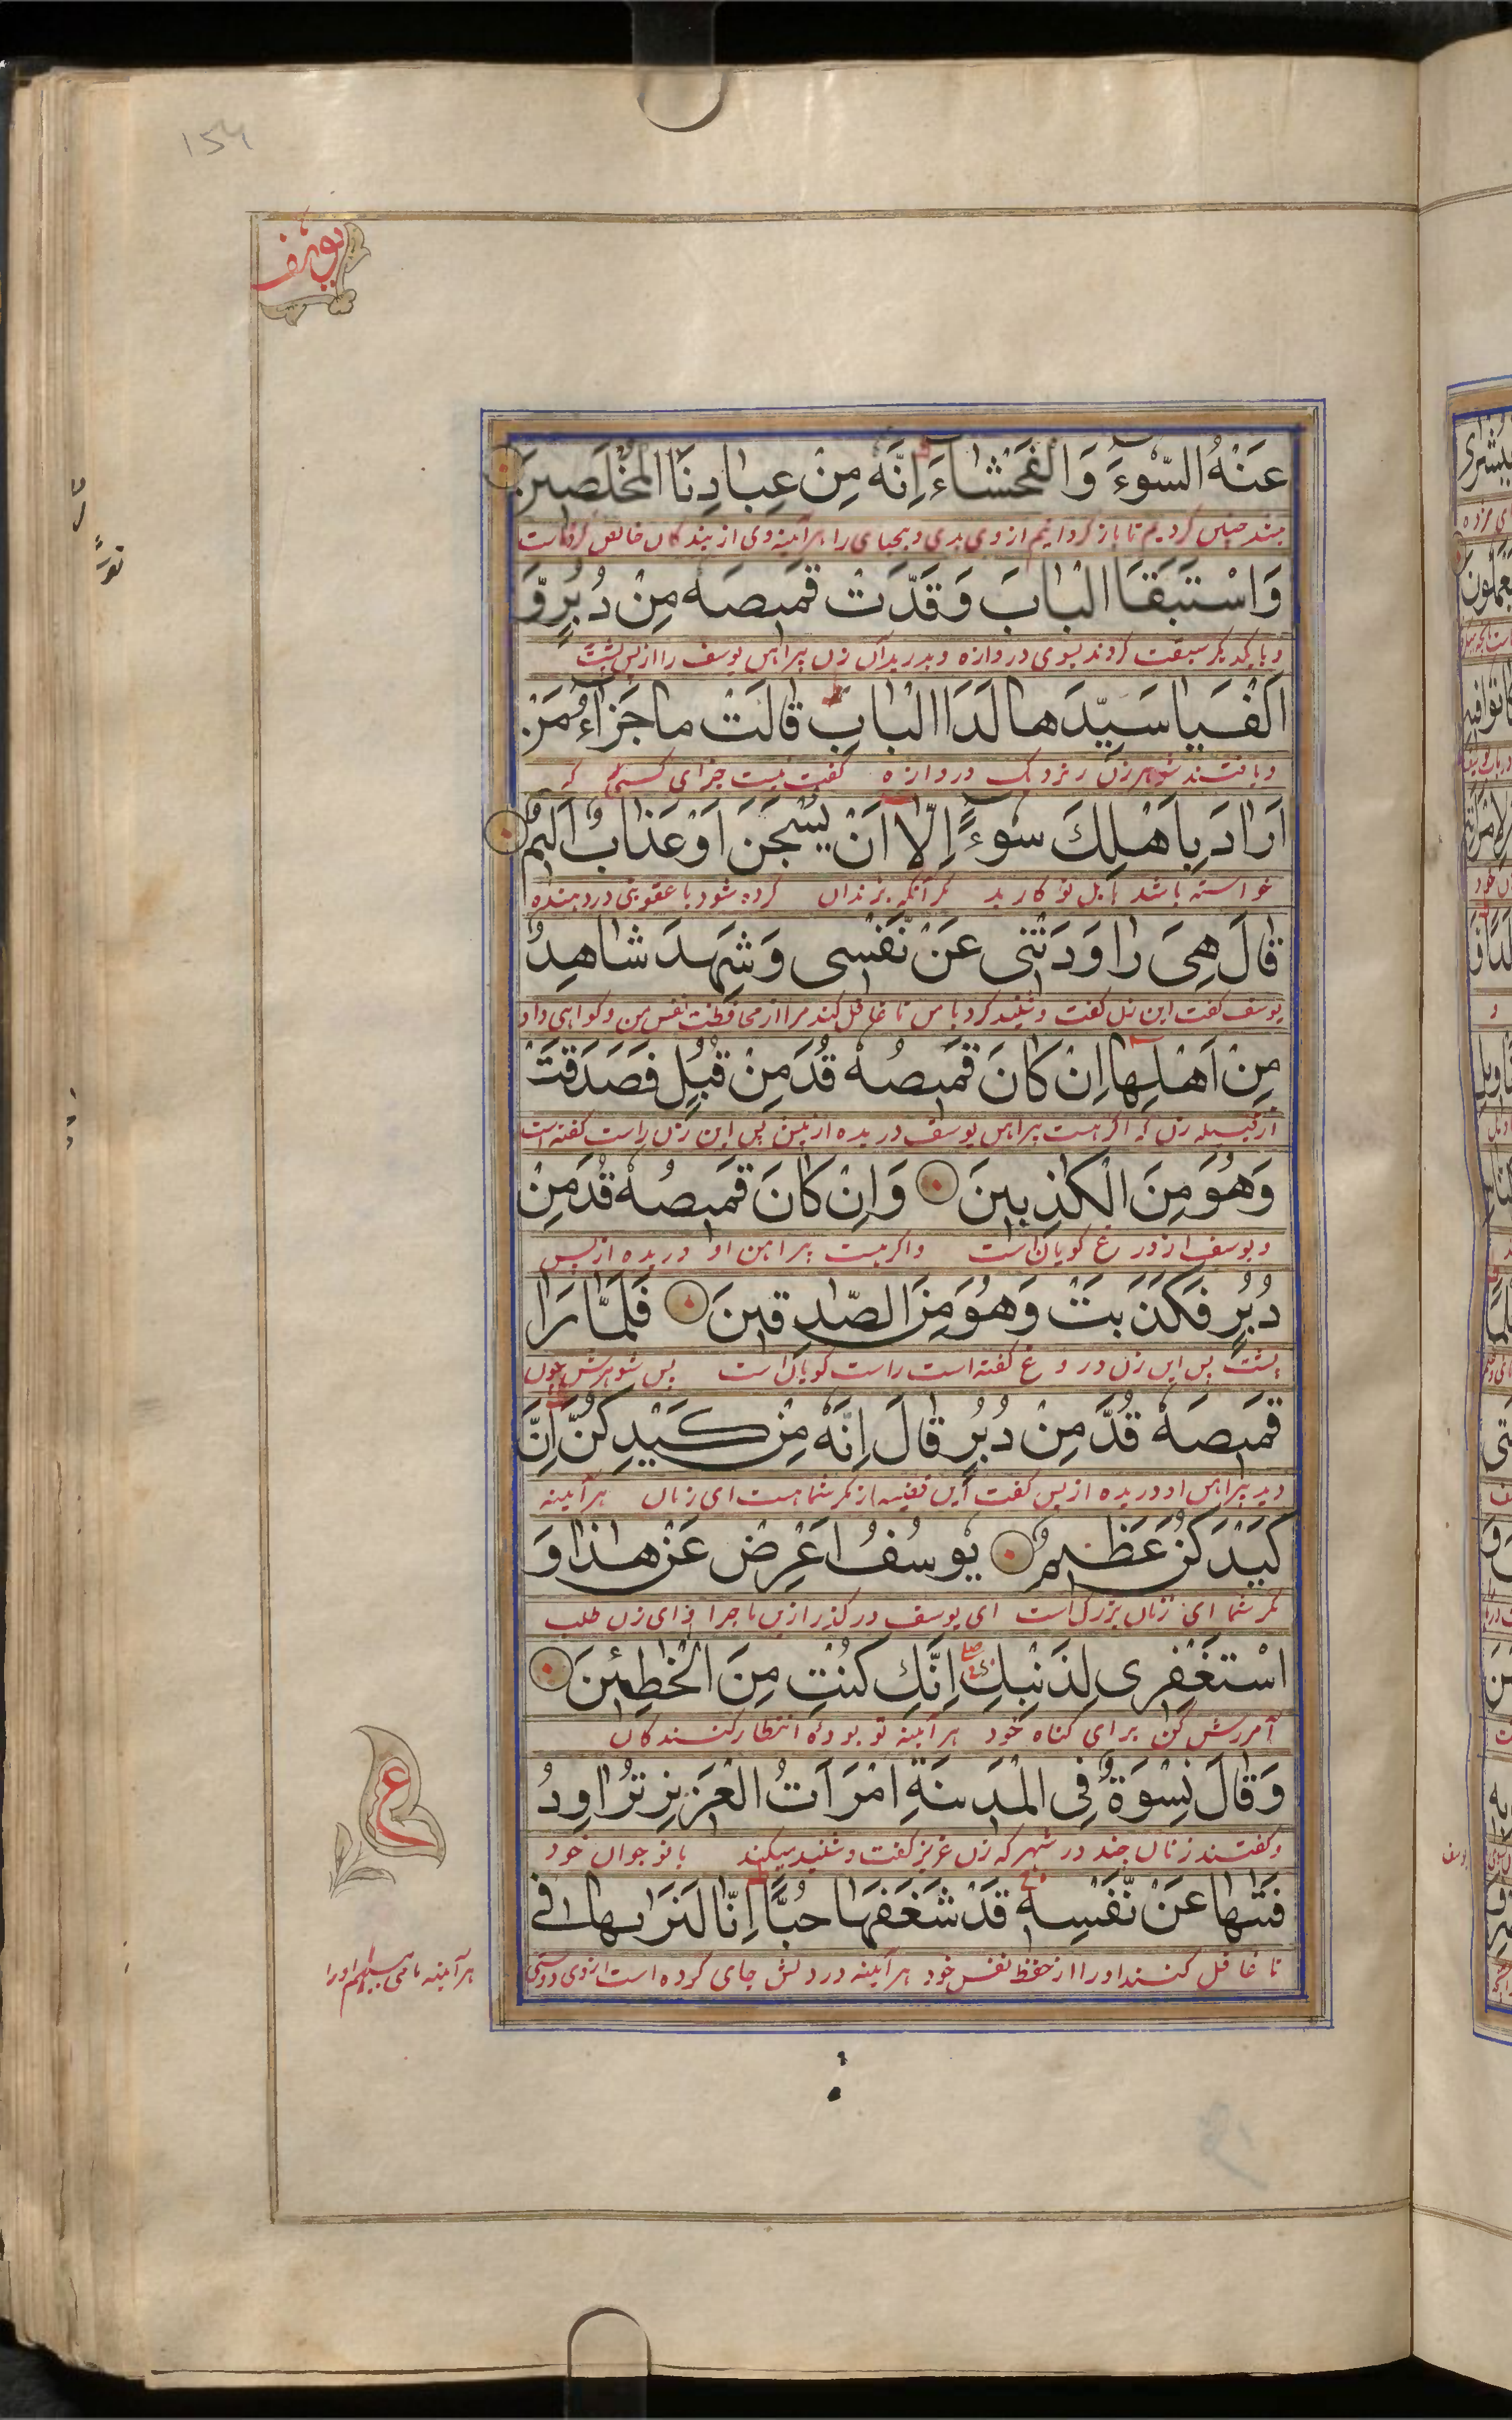 154
يوسف
عَنْهُ السُّوءَ وَالْفَحْشَاءَ اِنَّهٗ مِنْ عِبَادِنَا الْمُخْلَصِينَ
چنین کردیم تا باز گردانیم از وی بدی و بیحیای را هرآینه وی از بندکان خالص کرده ماست
وَاسْتَبَقَا الْبَابَ وَقَدَّتْ قَمِيصَهٗ مِنْ دُبُرٍ وَّ
و با یکدیکر سبقت کردند بسوی دروازه و بدرید آن زن پیراهن یوسف را از پس پشت
اَلْفَيَا سَيِّدَهَا لَدَا الْبَابِ قَالَتْ مَا جَزَاءُ مَنْ
و یافتند شوهر زن را نزدیک دروازه گفت چیست جزای کسی که
اَرَادَ بِاَهْلِكَ سُوءًا اِلَّا اَنْ يُسْجَنَ اَوْ عَذَابٌ اَلِيمٌ
خواسته باشد باهل تو کار بد مکر آنکه بزندان کرده شود یا عقوبتی درد دهنده
قَالَ هِيَ رَاوَدَتْنِي عَنْ نَّفْسِي وَشَهِدَ شَاهِدٌ
یوسف گفت این زن گفت و شنید کرد با من تا غافل کند مرا از محافظت نفس من و کواهی داد
مِنْ اَهْلِهَا اِنْ كَانَ قَمِيصُهٗ قُدَّ مِنْ قُبُلٍ فَصَدَقَتْ
از قبیله زن که اکر هست پیراهن یوسف دریده از پیش پس این زن راست کفته است
وَهُوَ مِنَ الْكٰذِبِينَ وَاِنْ كَانَ قَمِيصُهٗ قُدَّ مِنْ
و یوسف از دروغ کویان است و اکر هست پیراهن او دریده از پس
دُبُرٍ فَكَذَبَتْ وَهُوَ مِنَ الصّٰدِقِينَ فَلَمَّا رَاٰ
پشت پس این زن دروغ کفته است راست کویان است پس شوهرش چون
قَمِيصَهٗ قُدَّ مِنْ دُبُرٍ قَالَ اِنَّهٗ مِنْ كَيْدِكُنَّ اِنَّ
دید پیراهن او دریده از پس کفت این قضیه از مکر شما هست ای زنان هرآینه
كَيْدَكُنَّ عَظِيمٌ يُوسُفُ اَعْرِضْ عَنْ هٰذَا وَ
مکر شما ای زنان بزرک است ای یوسف در گذر ازین ماجرا و ای زن طلب
اسْتَغْفِرِى لِذَنْبِكِ اِنَّكِ كُنْتِ مِنَ الْخٰطِئِينَ
آمرزش کن برای کناه خود هرآینه تو بوده از خطا کنندکان
وَقَالَ نِسْوَةٌ فِى الْمَدِينَةِ امْرَاَتُ الْعَزِيزِ تُرَاوِدُ
و کفتند زنان چند در شهر که زن عزیز کفت و شنید میکند با نوجوان خود
فَتٰىهَا عَنْ نَّفْسِهٖ قَدْ شَغَفَهَا حُبًّا اِنَّا لَنَرٰىهَا فِى
تا غافل کنند او را از حفظ نفس خود هرآینه در دلش جای کرده است از روی دوستی
ع
هرآینه ما می بینیم او را